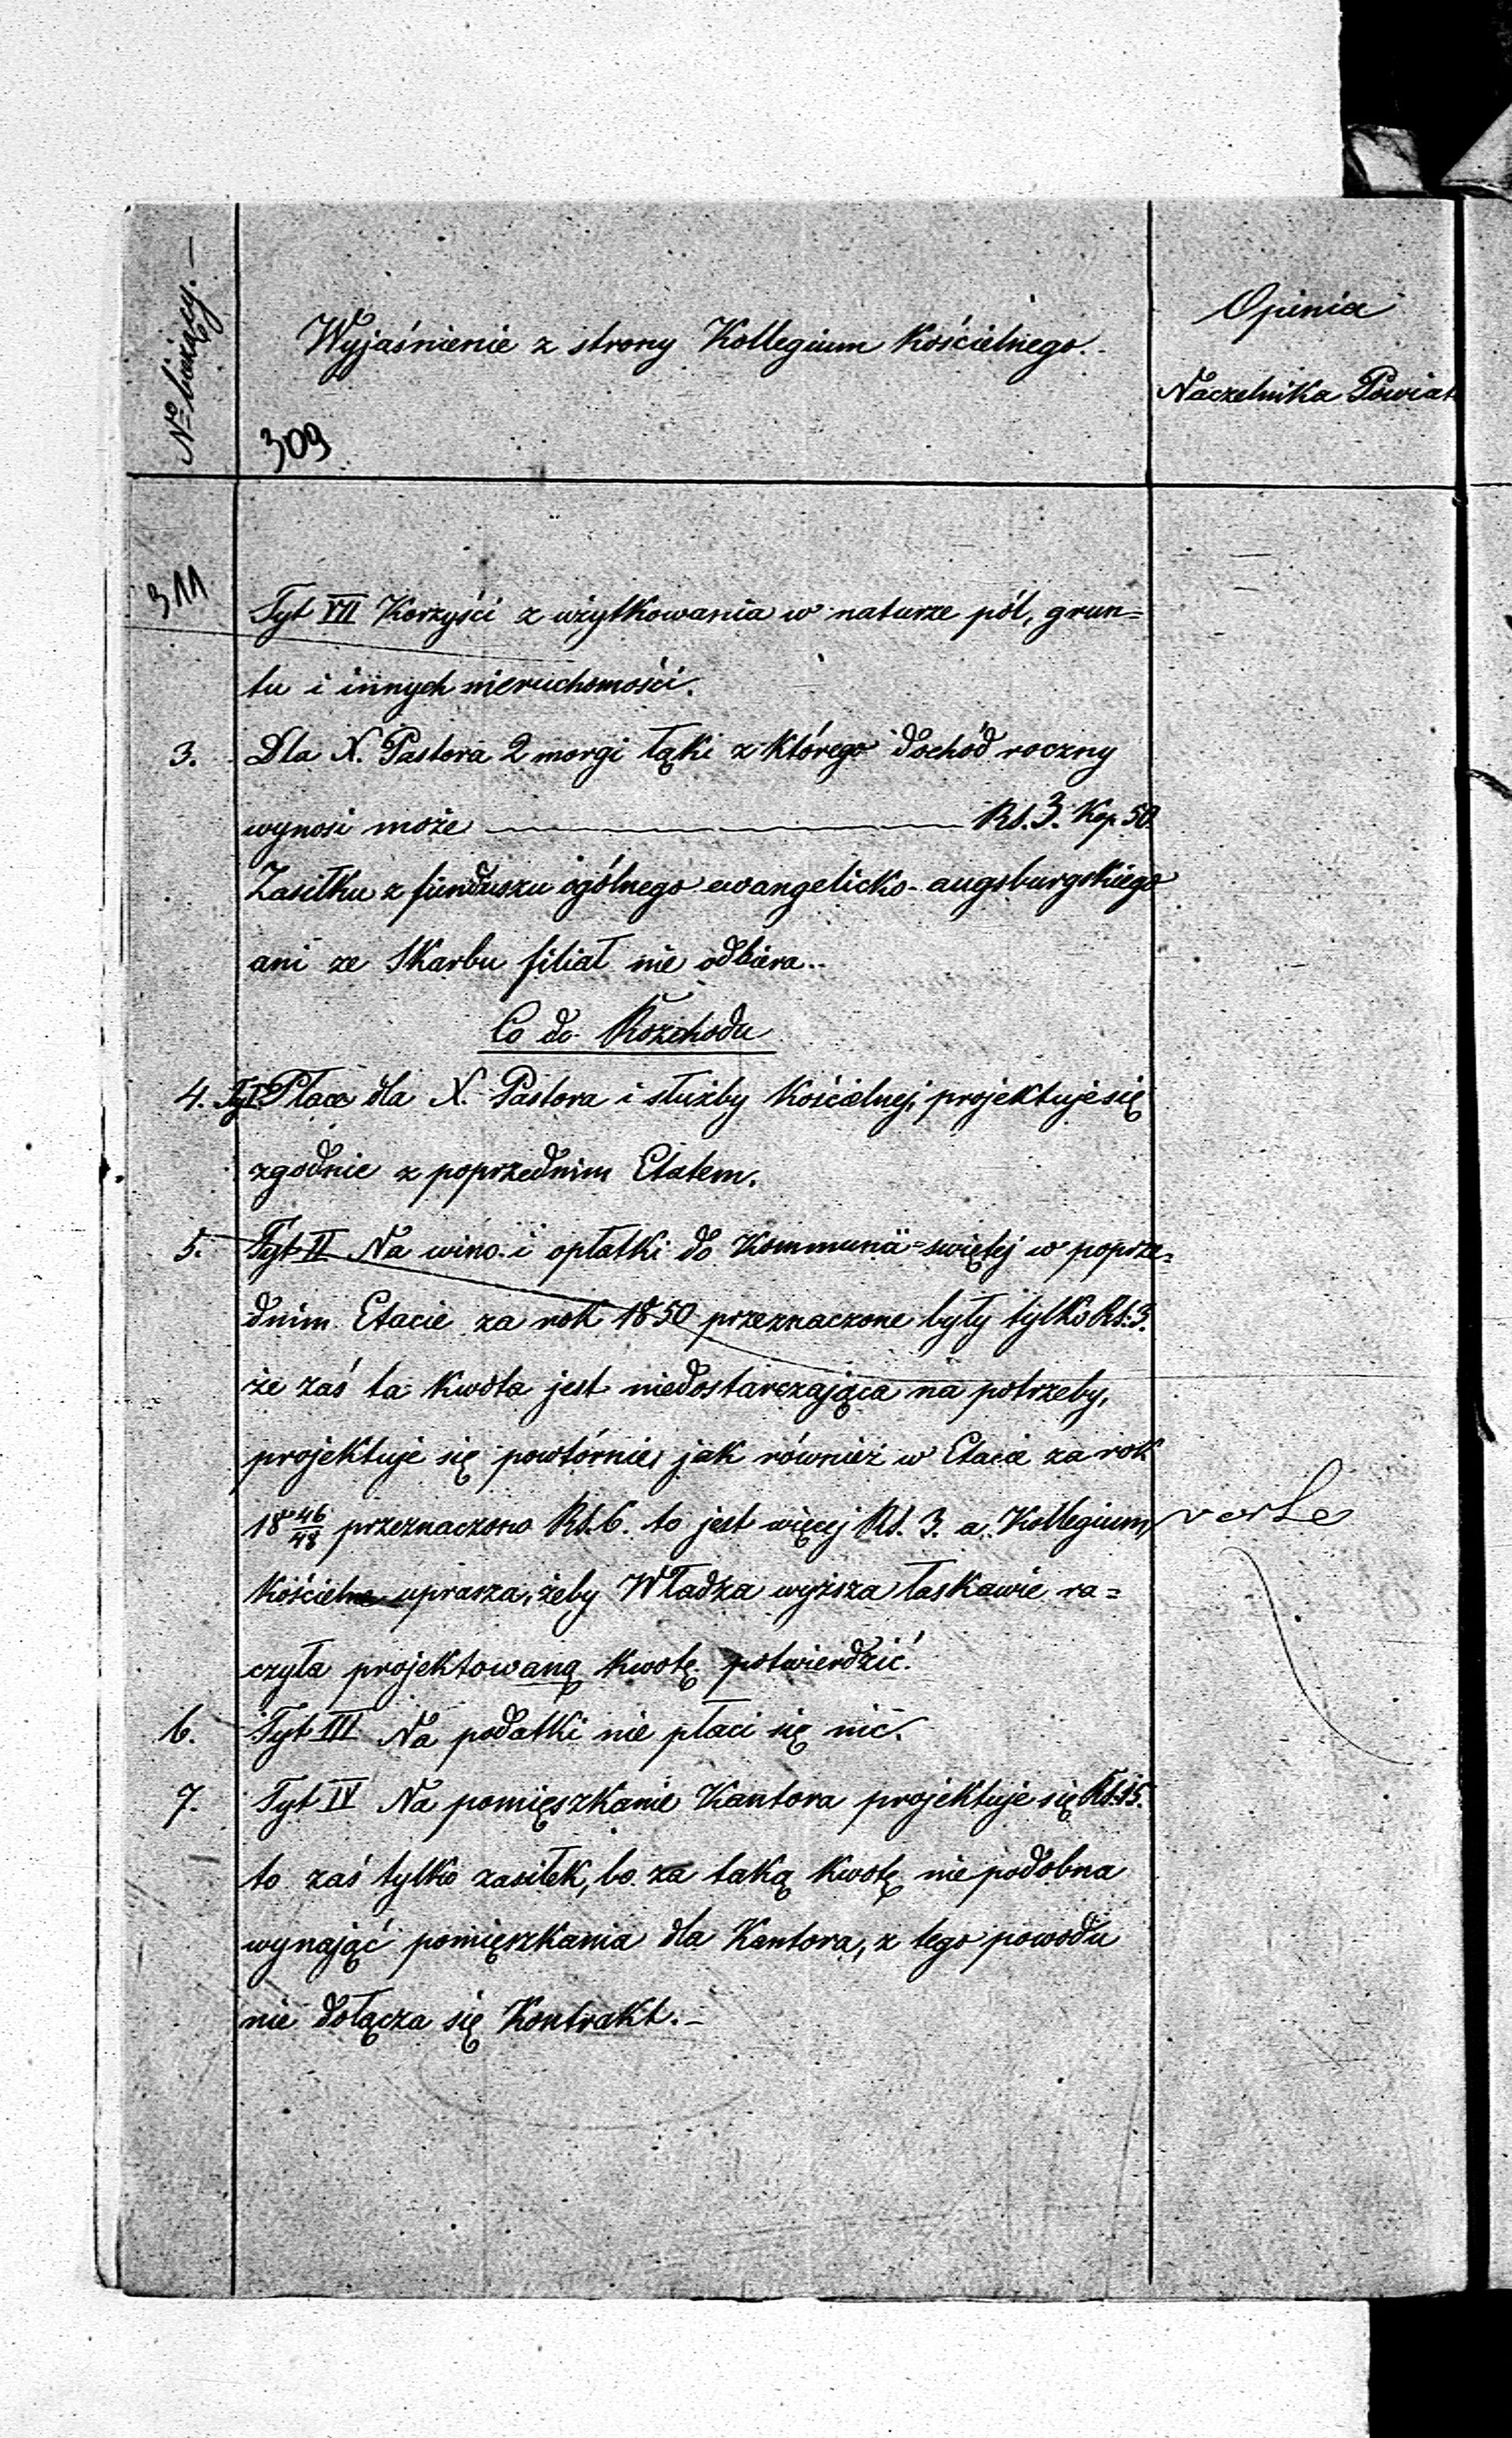 № bieżący.—
Wyjaśnienie z strony Kollegium Kościelnego.
Opinia
Naczelnika Powiat
309
311
Tyt VII Korzyści z użytkowania w naturze pól, grun=
tu i innych nieruchomości.
3. Dla X. Pastora 2 morgi łąki z którego dochód roczny
wynosi może Rs. 3. Kop. 50.
Zasiłku z funduszu ogólnego ewangelicko-augsburgskiego
ani ze Skarbu filiał nie odbiera.
Co do Rozchodu
4. Tyt I Płace dla X. Pastora i służby Kościelnej, projektuje się
zgodnie z poprzednim Etatem.
5. Tyt II Na wino i opłatki do Kommunii świętej w poprze=
dnim Etacie za rok 1850 przeznaczone były tylko Rs. 3.
że zaś ta kwota jest niedostarczająca na potrzeby,
projektuje się powtórnie, jak również w Etacie za rok
18 46/48 przeznaczono Rs. 6. to jest więcej Rs. 3. a Kollegium
Kościelne uprasza, żeby Władza wyższa łaskawie ra=
czyła projektowaną kwotę potwierdzić.
verte
6. Tyt III Na podatki nie płaci się nic.
7. Tyt IV Na pomięszkanie Kantora projektuje się Rs. 15.
to zaś tylko zasiłek, bo za taką kwotę niepodobna
wynająć pomięszkania dla Kantora, z tego powodu
nie dołącza się Kontrakt.—